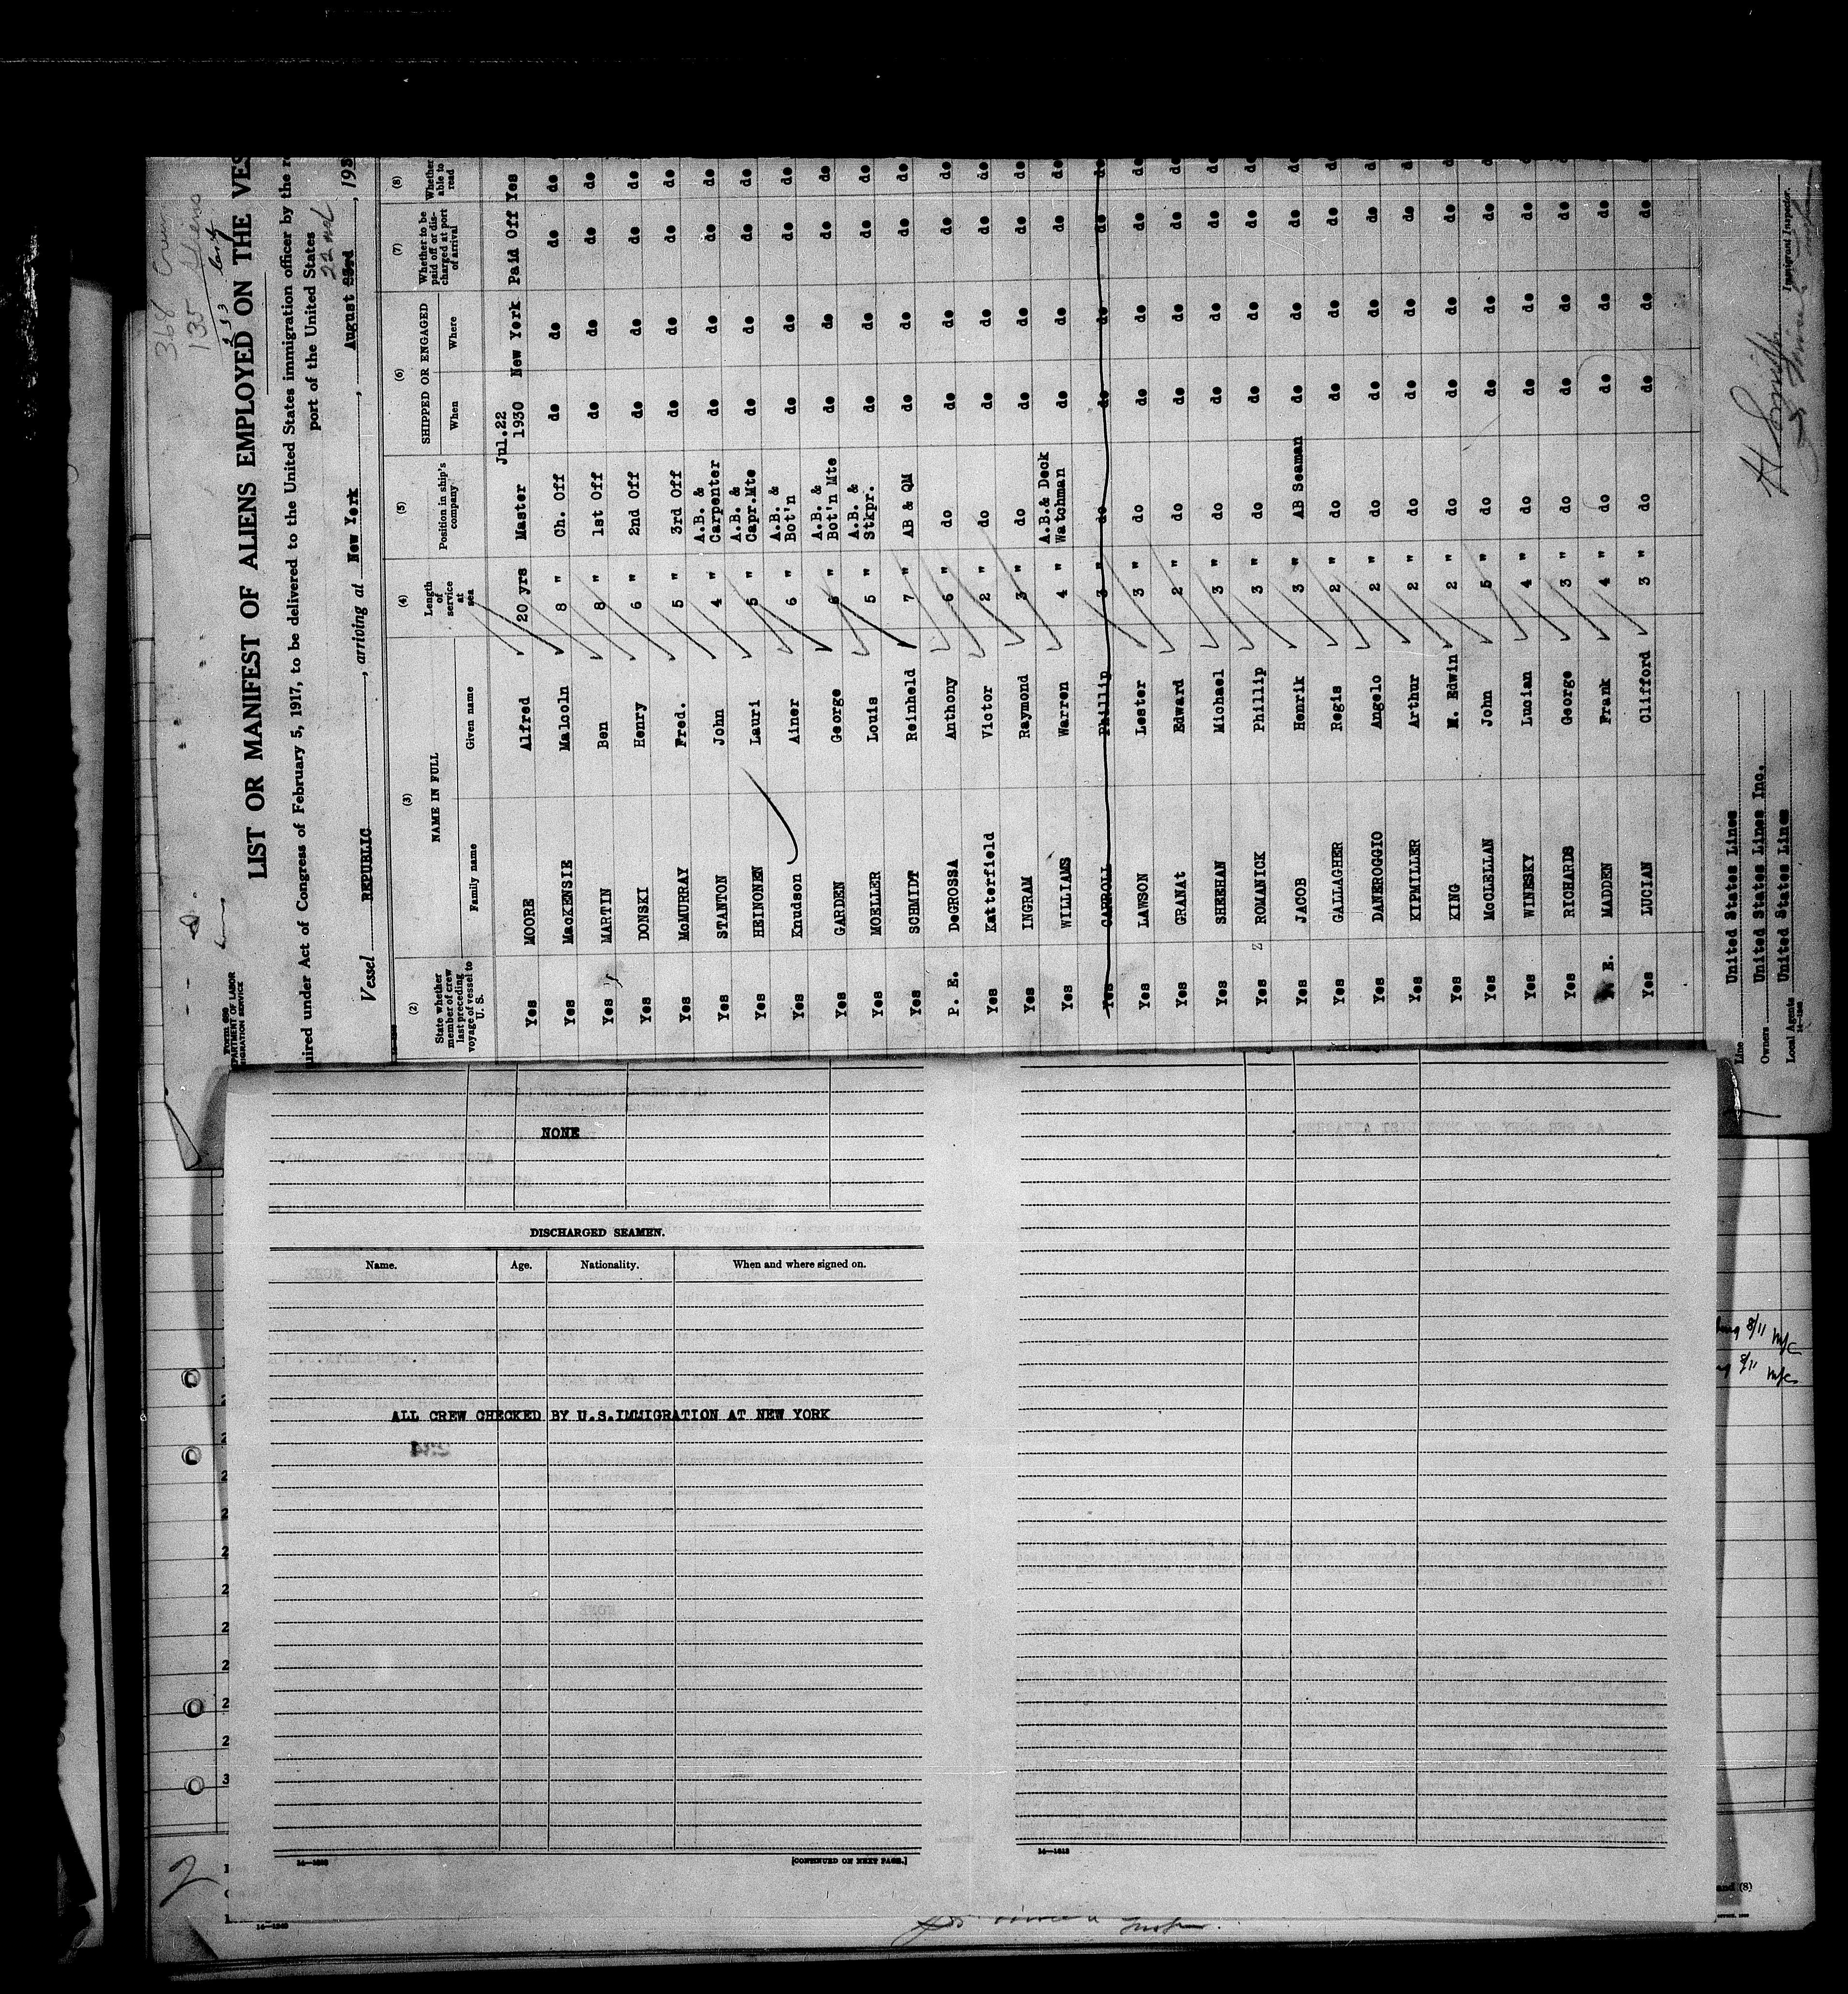 368 Crew
135 Aliens
LIST OR MANIFEST OF ALIENS EMPLOYED ON THE VES
uired under Act of Congress of February 5, 1917, to be delivered to the United States immigration officer by the r
port of the United States
22nd
Vessel REPUBLIC, arriving at New York, August 23rd, 193
(2) (3) (4) (5) (6) (7) (8)
State whether member of crew last preceding voyage of vessel to U. S. NAME IN FULL Family name Given name Length of service at sea Position in ship's company SHIPPED OR ENGAGED When Where Whether to be paid off or discharged at port of arrival Whether able to read
Yes MOORE Alfred 20 yrs Master Jul.22 1930 New York Paid Off Yes
Yes MacKENSIE Malcoln 8 " Ch. Off do do do do
Yes MARTIN Ben 8 " 1st Off do do do do
Yes DONSKI Henry 6 " 2nd Off do do do do
Yes McMURRAY Fred. 5 " 3rd Off do do do do
Yes STANTON John 4 " A.B. & Carpenter do do do do
Yes HEINONEN Lauri 5 " A.B. & Capr.Mte do do do do
Yes Knudson Ainer 6 " A.B. & Bot'n do do do do
Yes GARDEN George 6 " A.B. & Bot'n Mte do do do do
Yes MOELLER Louis 5 " A.B. & Stkpr. do do do do
Yes SCHMIDT Reinheld 7 " AB & QM do do do do
P. E. DeGROSSA Anthony 6 " do do do do do
Yes Katterfield Victor 2 " do do do do do
Yes INGRAM Raymond 3 " do do do do do
Yes WILLIAMS Warren 4 " A.B.& Deck Watchman do do do do
Yes CARROLL Phillip 3 " do do do do do
Yes LAWSON Lester 3 " do do do do do
Yes GRANAT Edward 2 " do do do do do
Yes SHEEHAN Michael 3 " do do do do do
Yes ROMANICK Phillip 3 " do do do do do
Yes JACOB Henrik 3 " AB Seaman do do do do
Yes GALLAGHER Regis 2 " do do do do do
Yes DANEROGGIO Angelo 2 " do do do do do
Yes KIPMILLER Arthur 2 " do do do do do
Yes KING M. Edwin 2 " do do do do do
Yes McCLELLAN John 5 " do do do do do
Yes WINESKY Lucian 4 " do do do do do
Yes RICHARDS George 3 " do do do do do
E. MADDEN Frank 4 " do do do do do
Yes LUCIAN Clifford 3 " do do do do do
Line United States Lines
Owners United States Lines Inc.
Local Agents United States Lines
Immigrant Inspector.
NONE
DISCHARGED SEAMEN.
Name. Age. Nationality. When and where signed on.
ALL CREW CHECKED BY U.S.IMMIGRATION AT NEW YORK
[CONTINUED ON NEXT PAGE.]
2